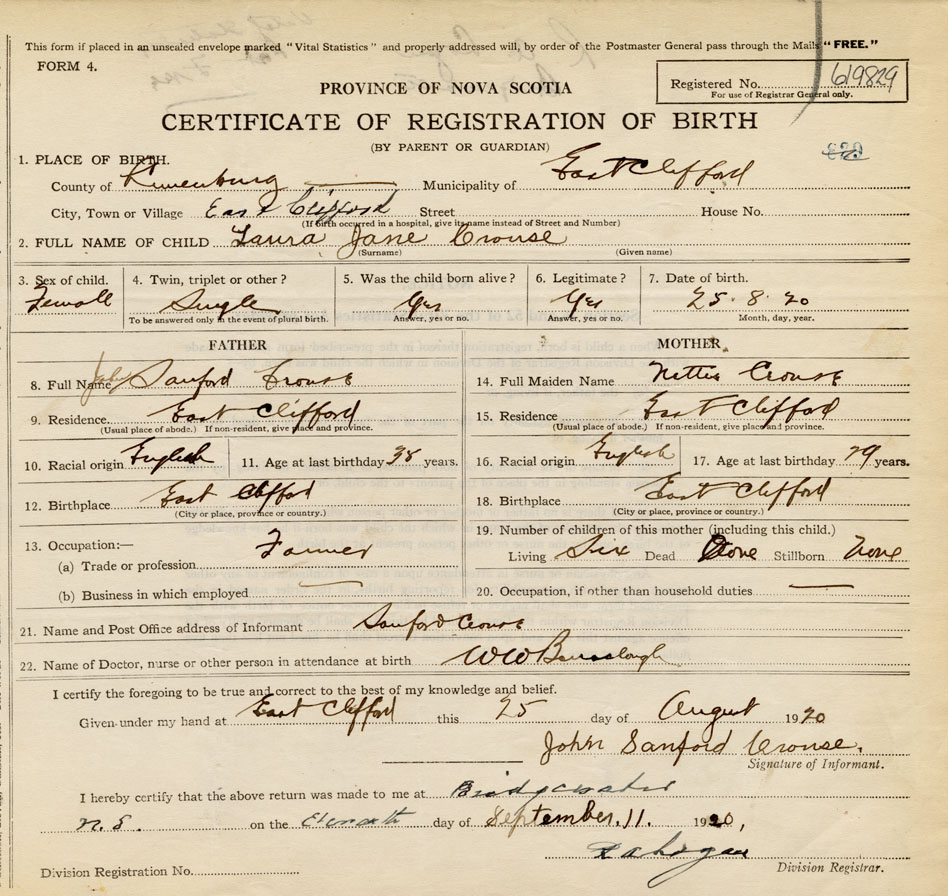 This form if placed in an unsealed envelope marked "Vital Statistics" and properly addressed will, by order of the Postmaster General pass through the Mails "FREE."
FORM 4.
Registered No. 619829
For use of Registrar General only.
PROVINCE OF NOVA SCOTIA
CERTIFICATE OF REGISTRATION OF BIRTH
(BY PARENT OR GUARDIAN)
1. PLACE OF BIRTH.
County of Lunenburg Municipality of East Clifford
City, Town or Village East Clifford Street House No.
(If birth occurred in a hospital, give its name instead of Street and Number)
2. FULL NAME OF CHILD Laura Jane Crouse
(Surname) (Given name)
3. Sex of child. 4. Twin, triplet or other? 5. Was the child born alive? 6. Legitimate? 7. Date of birth.
Femall Single Yes Yes 25. 8. 20
To be answered only in the event of plural birth. Answer, yes or no. Answer, yes or no. Month, day, year.
FATHER
8. Full Name John Sanford Crouse
9. Residence. East Clifford
(Usual place of abode.) If non-resident, give place and province.
10. Racial origin English 11. Age at last birthday 38 years.
12. Birthplace East Clifford
(City or place, province or country.)
13. Occupation:— Farmer
(a) Trade or profession
(b) Business in which employed
MOTHER
14. Full Maiden Name Nettie Crouse
15. Residence East Clifford
(Usual place of abode.) If non-resident, give place and province.
16. Racial origin English 17. Age at last birthday years.
18. Birthplace East Clifford
(City or place, province or country.)
19. Number of children of this mother (including this child.)
Living Six Dead None Stillborn None
20. Occupation, if other than household duties
21. Name and Post Office address of Informant Sanford Crouse
22. Name of Doctor, nurse or other person in attendance at birth W W
I certify the foregoing to be true and correct to the best of my knowledge and belief.
Given under my hand at East Clifford this 25 day of August 1920
John Sanford Crouse.
Signature of Informant.
I hereby certify that the above return was made to me at Bridgewater
N.S. on the Eleventh day of September.11. 1920,
Division Registrar.
Division Registration No.